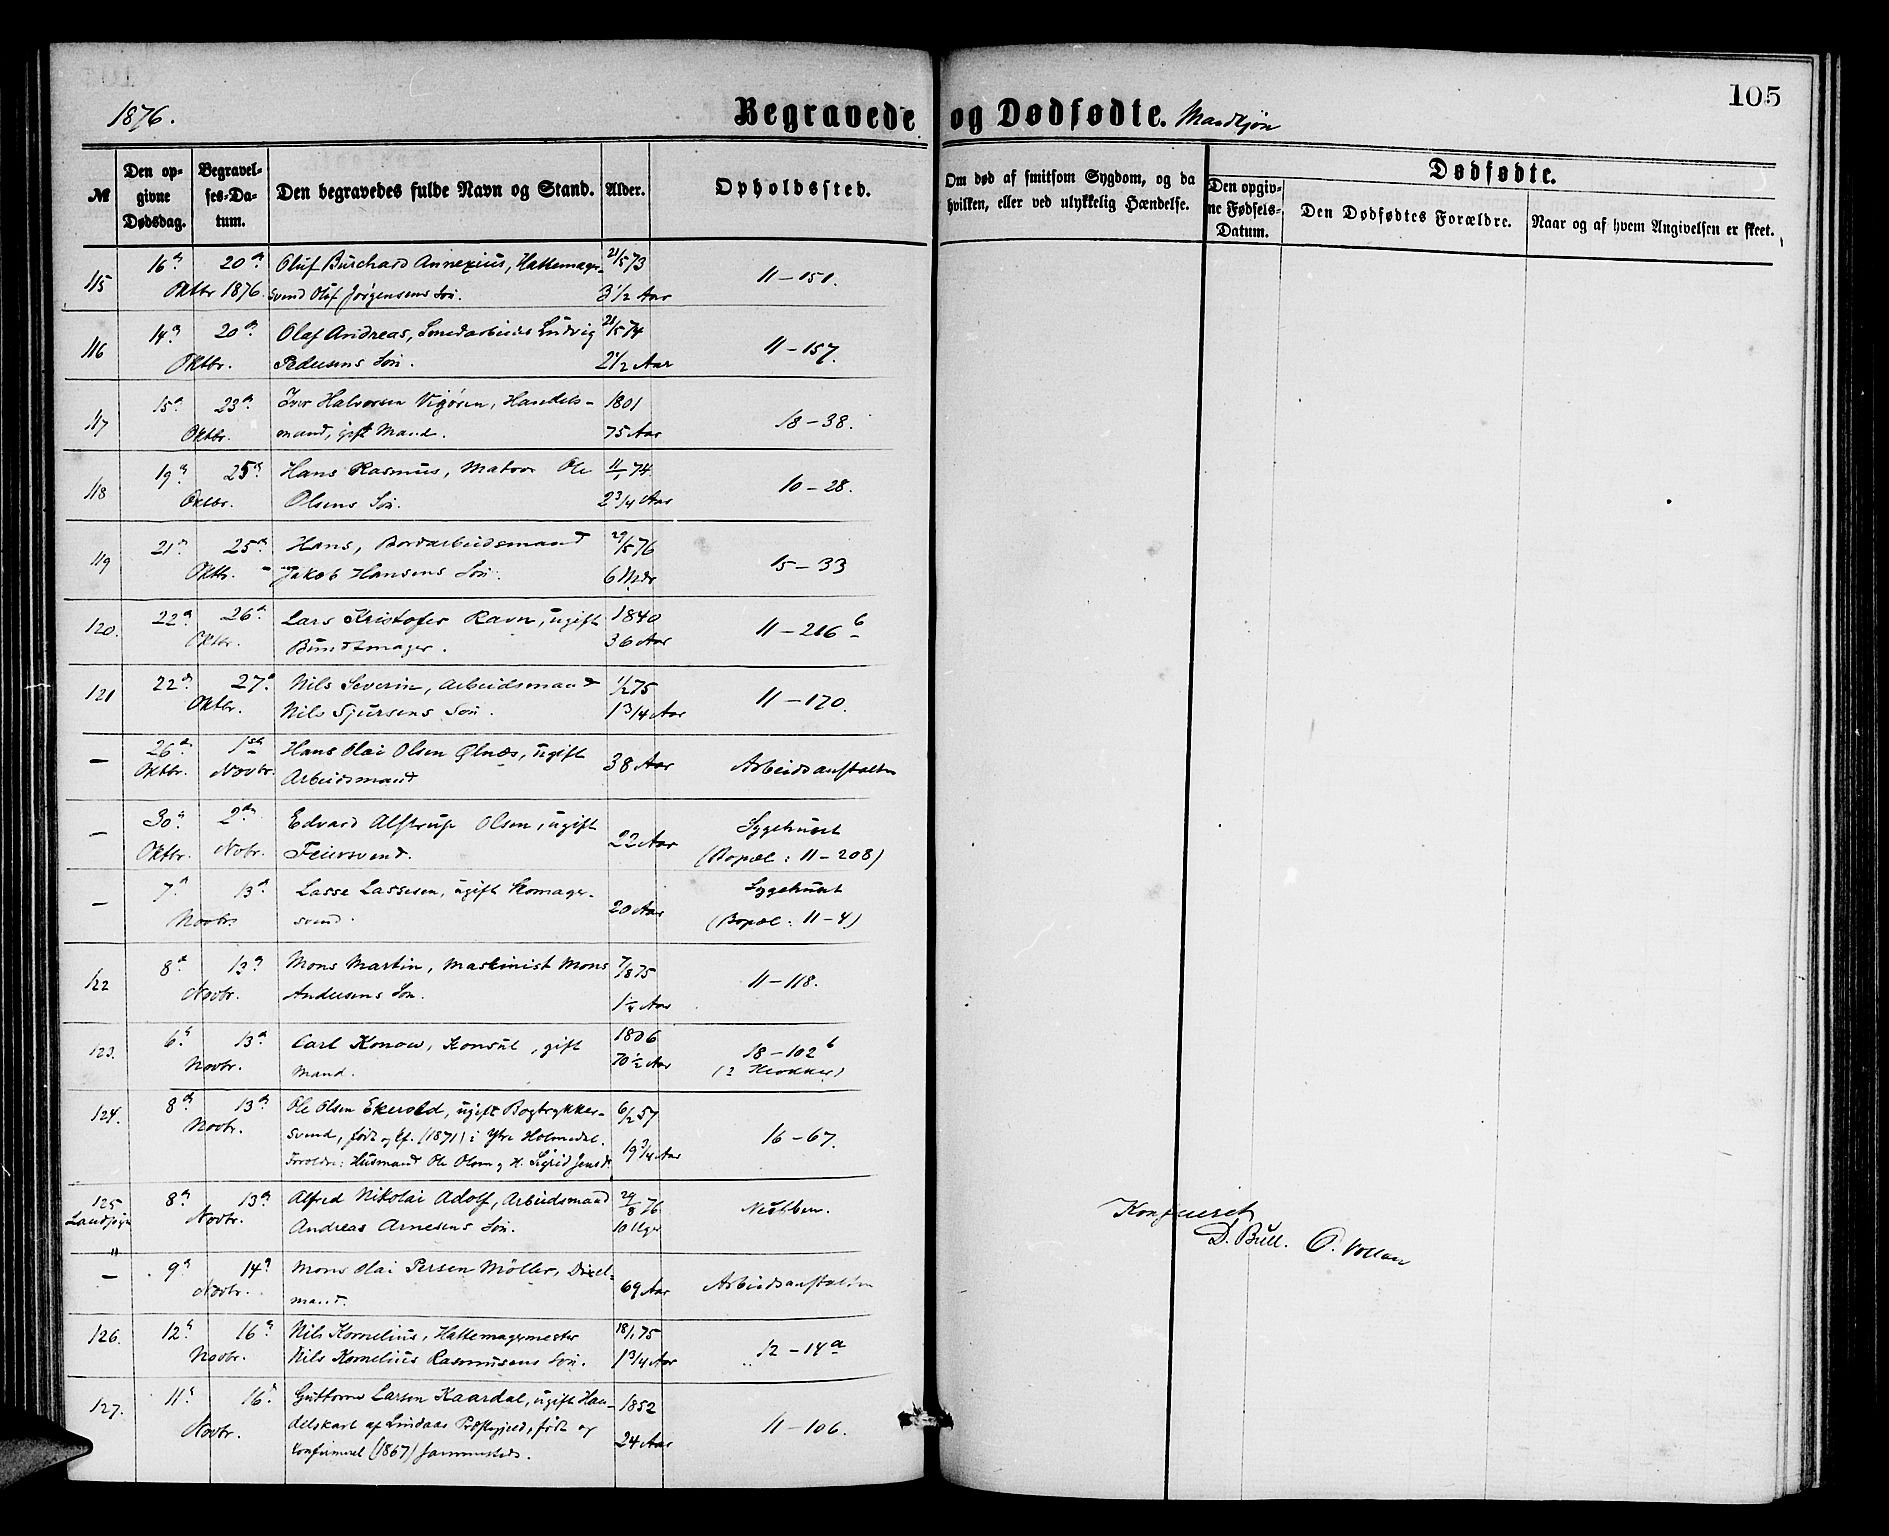 1876.
Begravede og Dødfødte. Mandkjøn
105
№
Den opgivne Dødsdag.
Begravelses-Datum.
Den begravedes fulde Navn og Stand.
Alder.
Opholdssted.
Om død af smitsom Sygdom, og da hvilken, eller ved ulykkelig Hændelse.
Dødfødte.
Den opgivne Fødsels-Datum.
Den Dødfødtes Forældre.
Naar og af hvem Angivelsen er skeet.
115 16de 20de Oluf Burchard Annexius, Hattemager- 21/5 73 11-151.
Oktbr 1876. svend Oluf Jørgensens Søn. 3 1/2 Aar
116 14de 20de Olaf Andreas, Ludvig 21/5 74 11-157.
Oktbr. Pedersens Søn. 2 1/2 Aar
117 15de 23de Iver Halvorsen Vigøren, Handels- 1801 18-38.
Oktbr. mand, gift Mand. 75 Aar
118 19de 25de Hans Rasmus, Matros Ole 11/1 74 10-28.
Oktbr. Olsens Søn. 2 3/4 Aar
119 21de 25de Hans, Bordarbeidsmand 29/5 76 15-33
Oktbr. Jakob Hansens Søn. 6 Mdr
120. 22de 26de Lars Kristofer Ravn, ugift 1840 11-216 b
Oktbr. Buntmager. 36 Aar
121 22de 27de Nils Severin, Arbeidsmand 1/2 75 11-170.
Oktbr. Nils Sjursens Søn. 1 3/4 Aar
— 26de 1ste Hans Olai Olsen Ølnæs, ugift 38 Aar Arbeidsanstalten
Oktbr. Novbr. Arbeidsmand
— 30de 2den Edvard Alstrup Olsen, ugift 22 Aar Sygehuset
Oktbr. Nobr. Feiersvend. (Bopæl: 11-208)
— 7de 13de Lasse Lassesen, ugift Skomager- 20 Aar Sygehuset
Novbr. svend. (Bopæl: 11-4)
122 8de 13de Mons Martin, Maskinist Mons 7/8 75 11-118.
Novbr. Andersens Søn. 1 1/4 Aar
123. 6te 13de Carl Konow, Konsul, gift 1806 18-102 b
Novbr. Mand. 70 1/2 Aar (2 Klokker)
124. 8de 13de Ole Olsen Ekerold, ugift Bogtrykker- 6/2 57 16-67.
Novbr. svend, født og cf. (1871) i Ytre Holmedal. 19 3/4 Aar
Forældre: Husmand Ole Olsen og H. Sigrid Jensd.
125 8de 13de Alfred Nikolai Adolf, Arbeidsmand 29/8 76
Novbr. Andreas Arnesens Søn. 10 Uger
— 9de 14de Mons Olai Persen Möller, 69 Aar Arbeidsanstalten
Novbr. mand.
126. 12te 16de Nils Kornelius, Hattemagermester 18/1 75 12-14a
Novbr. Nils Kornelius Rasmussens Søn. 1 3/4 Aar
127. 11te 16de Guttorm Larsen Kaardal, ugift Han- 1852 11-106.
Novbr. delskarl af Lindaas Præstegjeld, født og 24 Aar
confirmeret (1867) sammesteds.
Konfereret
D. Bull. O. Vollan